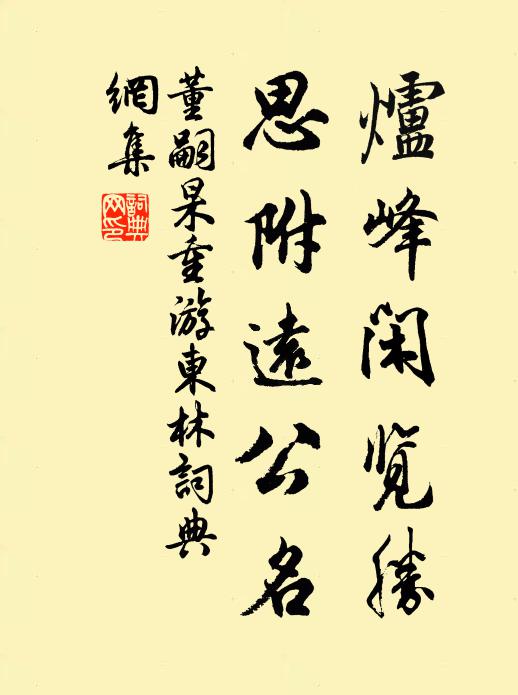 爐峰閑覽勝
思附遠公名
董嗣杲重游東林詞典
網集
詞典
网印